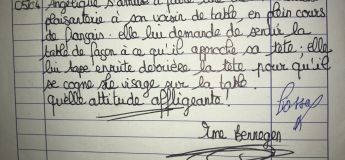 Angélique s'amuse à faire une
plaisanterie à son voisin de table, en plein cours
de français : elle lui demande de sentir la
table de façon à ce qu'il approche sa tête ; elle
lui tape ensuite derrière la tête pour qu'il
se cogne le visage sur la table.
quelle attitude affligeante !
Mme Bennegen